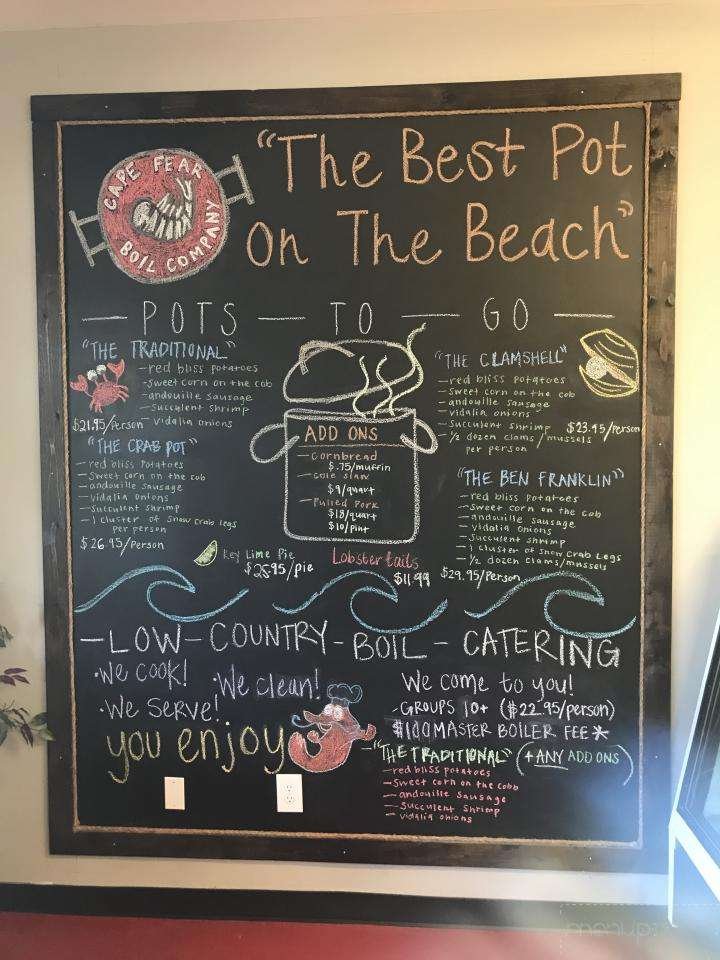 CAPE FEAR
BOIL COMPANY
"The Best Pot
on The Beach"
— POTS — TO — GO —
"THE TRADITIONAL"
-red bliss potatoes
-sweet corn on the cob
-andouille sausage
-succulent shrimp
- vidalia onions
$21.95/Person
"THE CRAB POT"
-red bliss potatoes
-sweet corn on the cob
-andouille sausage
-vidalia onions
-succulent shrimp
-1 cluster of snow crab legs
per person
$26.95/Person
ADD ONS
-cornbread
$.75/muffin
-cole slaw
$9/quart
-pulled pork
$18/quart
$10/pint
Key Lime Pie
$25.95/pie
Lobster tails
$11.99
"THE CLAMSHELL"
-red bliss potatoes
-sweet corn on the cob
-andouille sausage
-vidalia onions
-succulent shrimp
-1/2 dozen clams/mussels
per person
$23.95/person
"THE BEN FRANKLIN"
-red bliss potatoes
-sweet corn on the cob
-andouille sausage
-vidalia onions
-succulent shrimp
-1 cluster of snow crab legs
-1/2 dozen clams/mussels
$29.95/Person
-LOW-COUNTRY-BOIL-CATERING
·We cook!
·We clean!
·We serve!
you enjoy
We come to you!
-GROUPS 10+ ($22.95/person)
$100 MASTER BOILER FEE*
-"THE TRADITIONAL" (+ANY ADD ONS)
-red bliss potatoes
-sweet corn on the cobb
-andouille sausage
-succulent shrimp
-vidalia onions